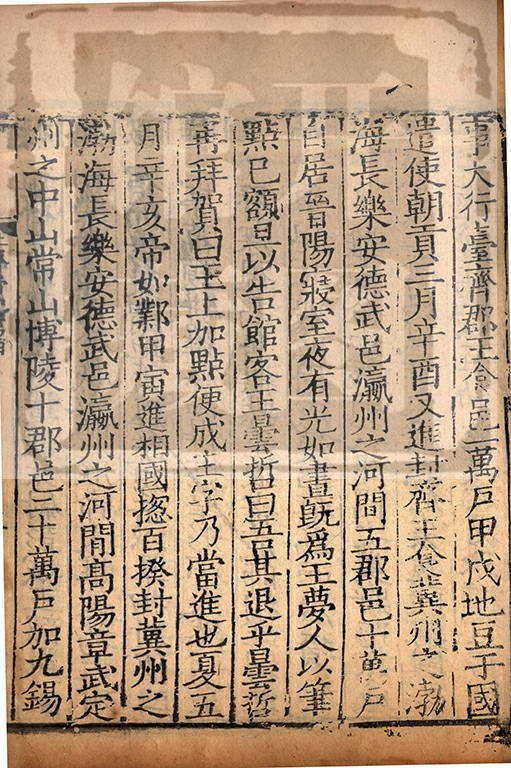 事大行臺齊郡王食邑一萬戶甲戌地豆于國
遣使朝貢三月辛酉又進封齊王食冀州之渤
海長樂安德武邑瀛州之河間五郡邑十萬戶
自居晉陽寢室夜有光如晝旣爲王夢人以筆
點已額旦以告館客王曇哲曰吾其退乎曇哲
再拜賀曰王上加點便成主字乃當進也夏五
月辛亥帝如鄴甲寅進相國摠百揆封冀州之
渤海長樂安德武邑瀛州之河閒髙陽章武定
州之中山常山博陵十郡邑二十萬戶加九錫